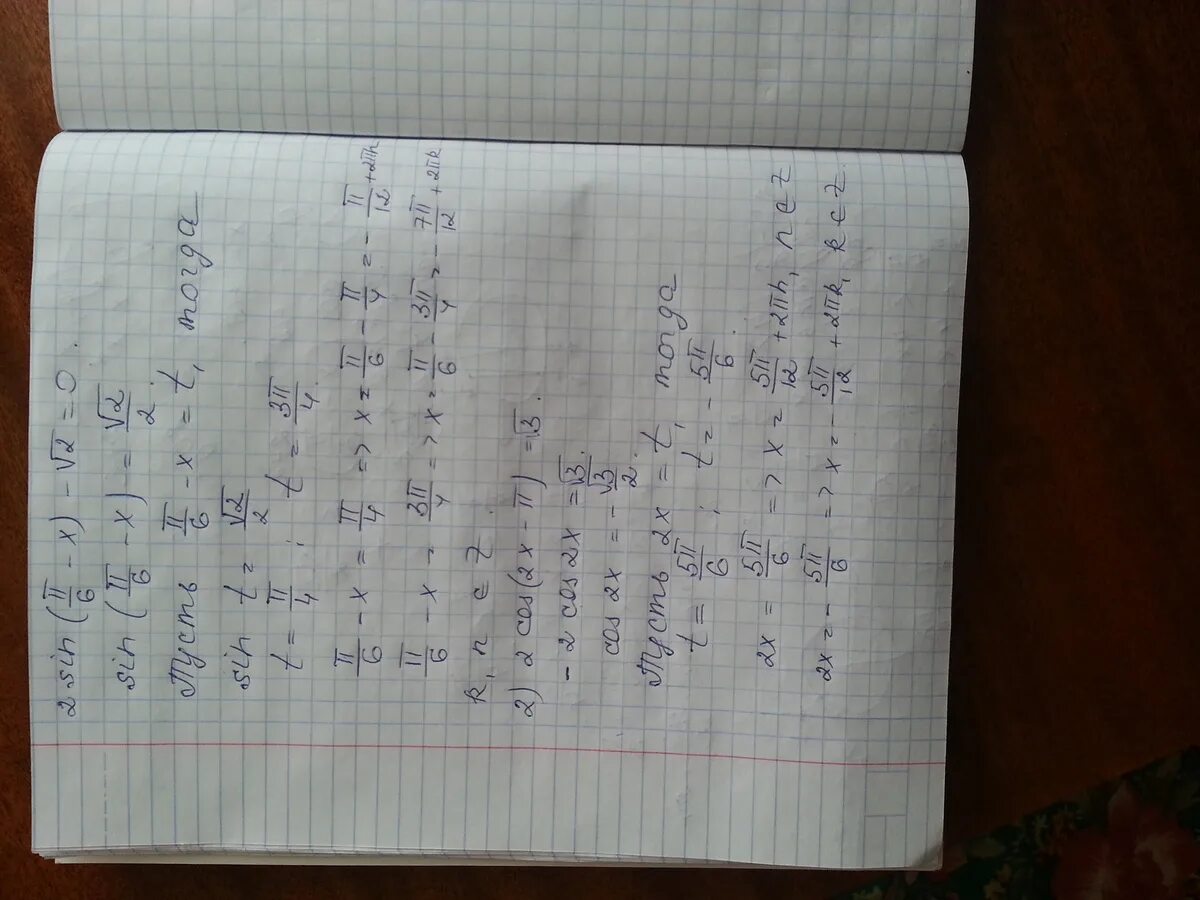 2 sin (π/6 - x) - √2 = 0.
sin (π/6 - x) = √2/2
Пусть π/6 - x = t, тогда
sin t = √2/2
t = π/4 ; t = 3π/4.
π/6 - x = π/4 => x = π/6 - π/4 = - π/12 + 2πn
π/6 - x = 3π/4 => x = π/6 - 3π/4 = - 7π/12 + 2πk
k, n ∈ Z
2) 2 cos(2x - π) = √3.
- 2 cos 2x = √3.
cos 2x = - √3/2.
Пусть 2x = t, тогда
t = 5π/6 ; t = - 5π/6.
2x = 5π/6 => x = 5π/12 + 2πn, n ∈ Z
2x = - 5π/6 => x = - 5π/12 + 2πk, k ∈ Z.